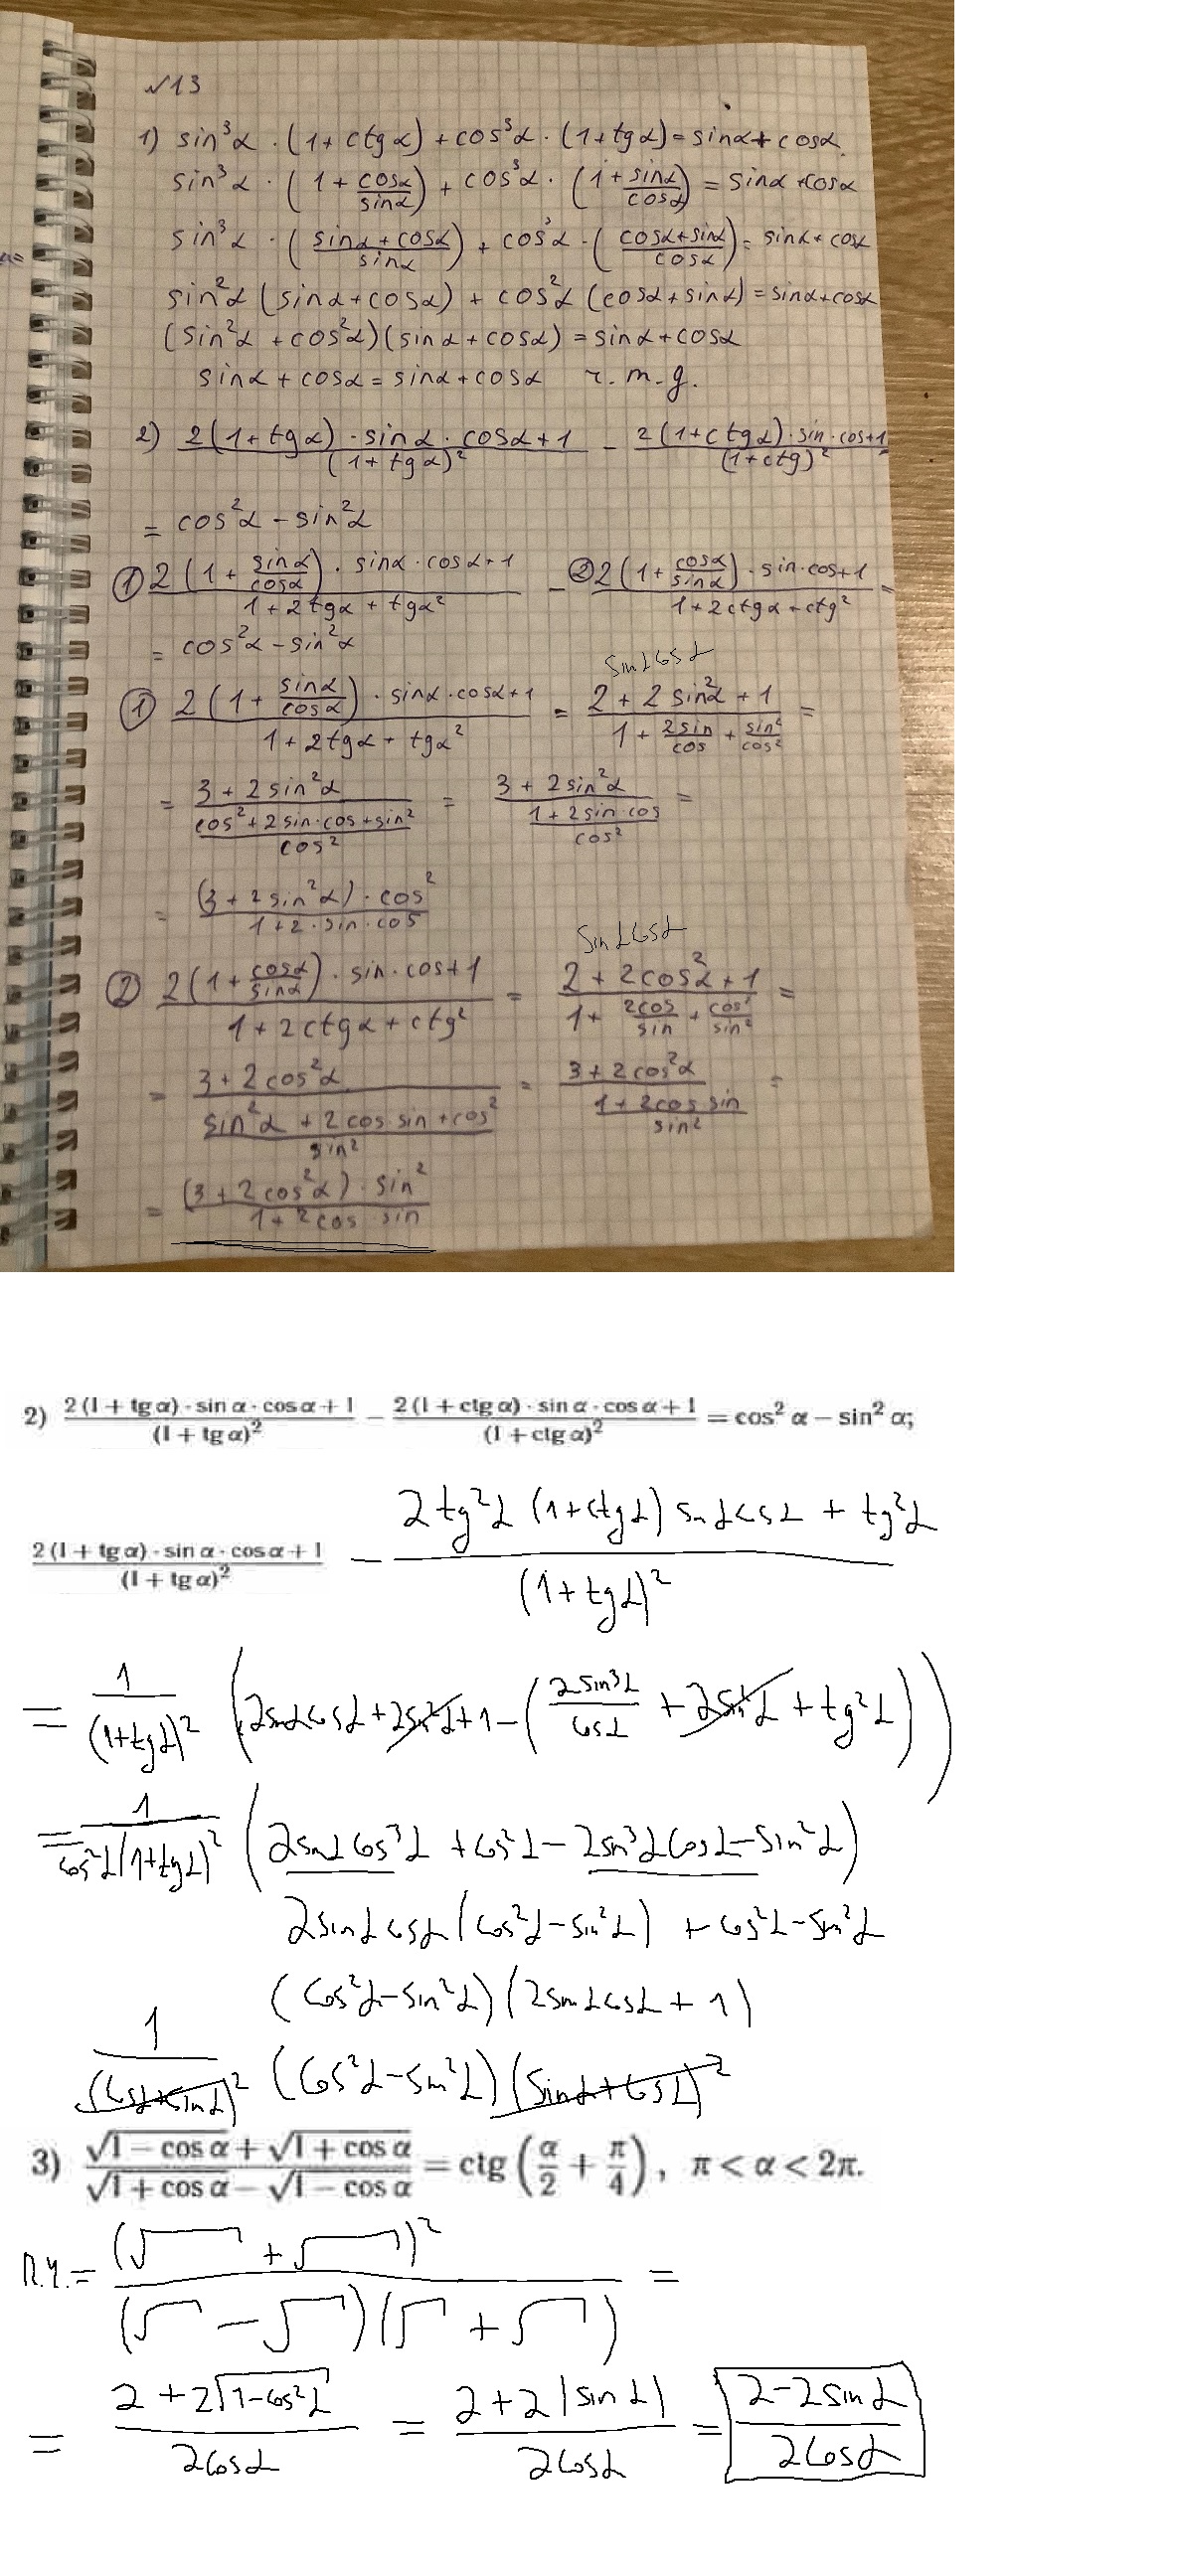 √13
1) sin³α · (1 + ctgα) + cos³α · (1 + tgα) = sinα + cosα.
sin³α · (1 + cosα/sinα) + cos³α · (1 + sinα/cosα) = sinα + cosα
sin³α · ((sinα + cosα)/sinα) + cos³α · ((cosα + sinα)/cosα) = sinα + cosα
sin²α (sinα + cosα) + cos²α (cosα + sinα) = sinα + cosα
(sin²α + cos²α)(sinα + cosα) = sinα + cosα
sinα + cosα = sinα + cosα ч. т. д.
2) (2(1 + tgα) · sinα · cosα + 1)/(1 + tgα)² - (2(1 + ctgα) · sin · cos + 1)/(1 + ctg)² =
= cos²α - sin²α
① (2(1 + sinα/cosα) · sinα · cosα + 1)/(1 + 2tgα + tgα²) - ② (2(1 + cosα/sinα) · sin · cos + 1)/(1 + 2ctgα + ctg²) =
= cos²α - sin²α
sinα cosα
① (2(1 + sinα/cosα) · sinα · cosα + 1)/(1 + 2tgα + tgα²) = (2 + 2sin²α + 1)/(1 + 2sin/cos + sin²/cos²) =
= (3 + 2sin²α)/((cos² + 2sin · cos + sin²)/cos²) = (3 + 2sin²α)/((1 + 2sin · cos)/cos²) =
= ((3 + 2sin²α) · cos²)/(1 + 2 · sin · cos)
sinα cosα
② (2(1 + cosα/sinα) · sin · cos + 1)/(1 + 2ctgα + ctg²) = (2 + 2cos²α + 1)/(1 + 2cos/sin + cos²/sin²) =
= (3 + 2cos²α)/((sin²α + 2cos · sin + cos²)/sin²) = (3 + 2cos²α)/((1 + 2cos sin)/sin²) =
= ((3 + 2cos²α) · sin²)/(1 + 2cos sin)
2) (2(1 + tg α) · sin α · cos α + 1)/(1 + tg α)² − (2(1 + ctg α) · sin α · cos α + 1)/(1 + ctg α)² = cos² α − sin² α;
(2(1 + tg α) · sin α · cos α + 1)/(1 + tg α)² − (2tg²α (1 + ctgα) sinα cosα + tg²α)/(1 + tgα)²
= 1/(1+tgα)² (2sinα cosα + 2sin²α + 1 − (2sin³α/cosα + 2sin²α + tg²α))
= 1/(cos²α(1+tgα)²) (2sinα cos³α + cos²α − 2sin³α cosα − sin²α)
2sinα cosα (cos²α − sin²α) + cos²α − sin²α
(cos²α − sin²α)(2sinα cosα + 1)
1/(cosα+sinα)² (cos²α − sin²α)(sinα + cosα)²
3) (√1 − cos α + √1 + cos α)/(√1 + cos α − √1 − cos α) = ctg (α/2 + π/4), π < α < 2π.
Л.Ч. = (√ + √)²/((√ − √)(√ + √)) =
= (2 + 2√1−cos²α)/(2cosα) = (2 + 2|sinα|)/(2cosα) = (2 − 2sinα)/(2cosα)